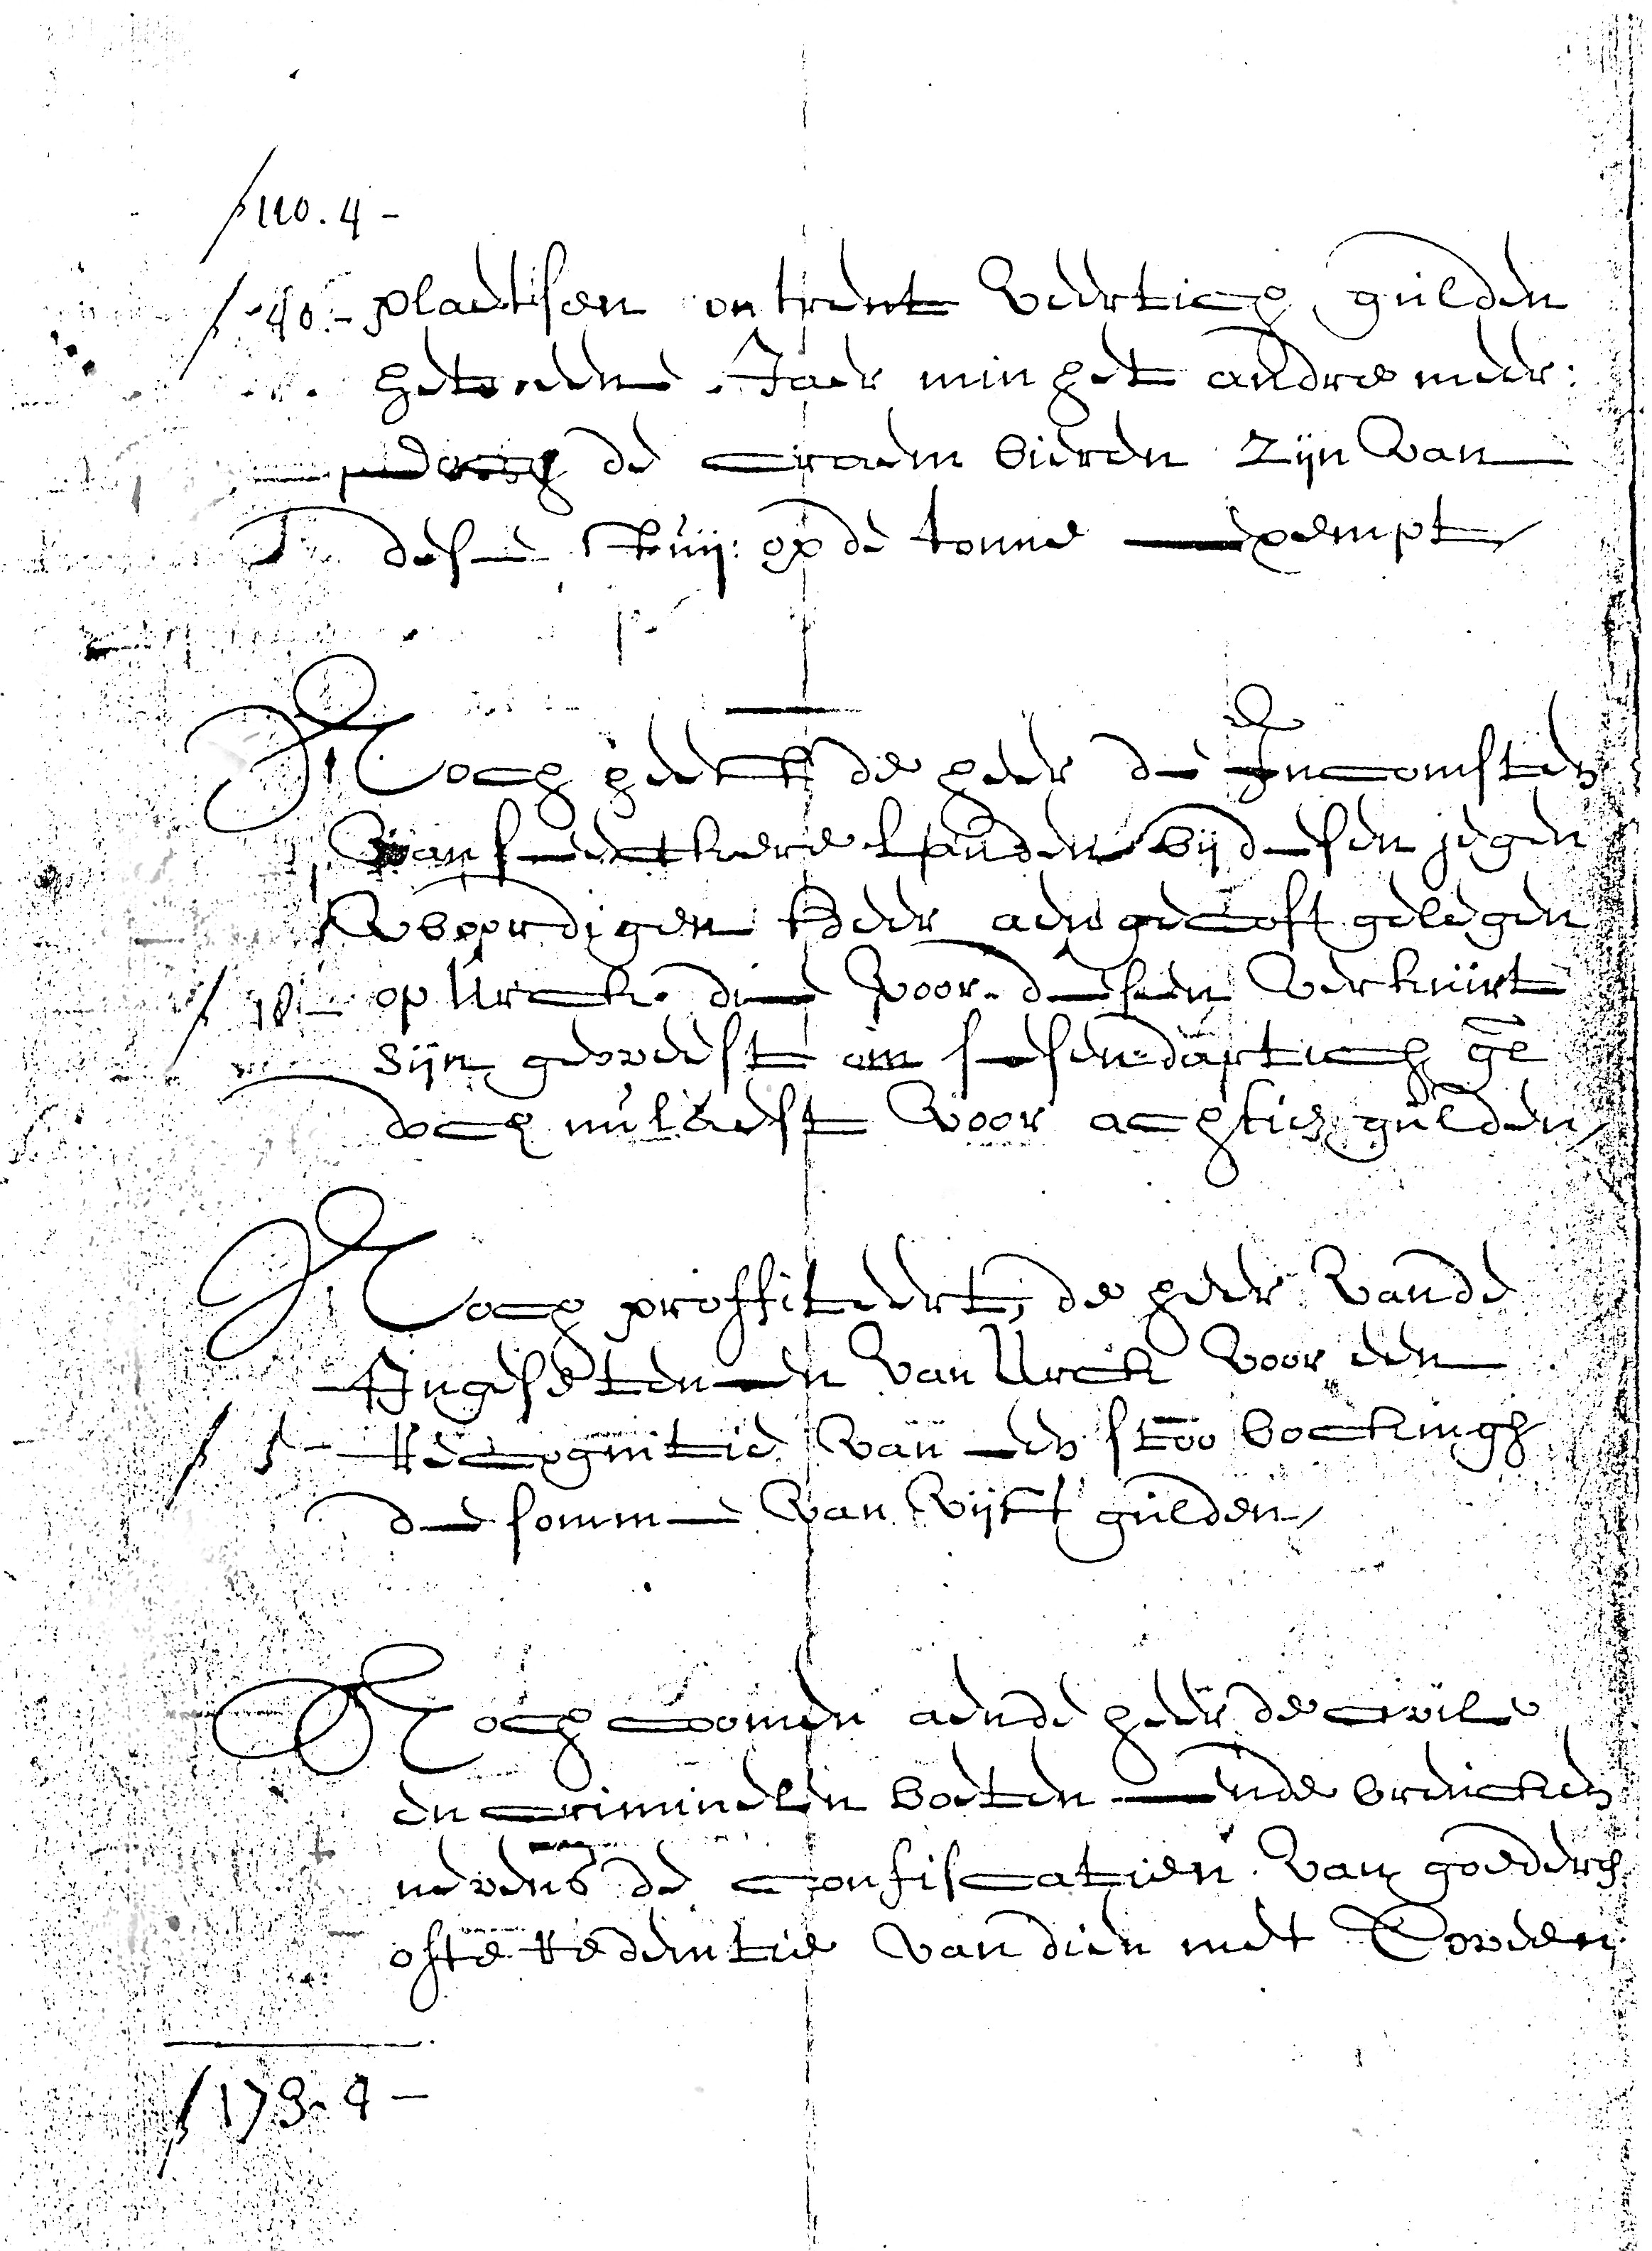 ƒ 110. 4 -
ƒ 40. - plaetsen ontrent veertich gulden
het eene Jaer min het andre meer:
doch de craem bieren zijn van
dese stuij: op de tonne exempt
Noch heeft de heer de Incomsten
van seeckere landen bij desen jegen
woordigen heer aengecoft gelegen
ƒ 18 - op Urck. die voor desen verhuirt
sijn geweest om sesendartich gl
doch nu laest voor achtien gulden
Noch proffiteert de heer vande
Ingesetenen van Urck voor een
ƒ 5 - Recognitie van een stroo bockingh
de somme van vijff gulden
Noch coomen aende heer de civile
en criminelen boeten ende breucken
nevens de confiscatien van goederen
ofte Redemtie van dien met
ƒ 173. 4 -